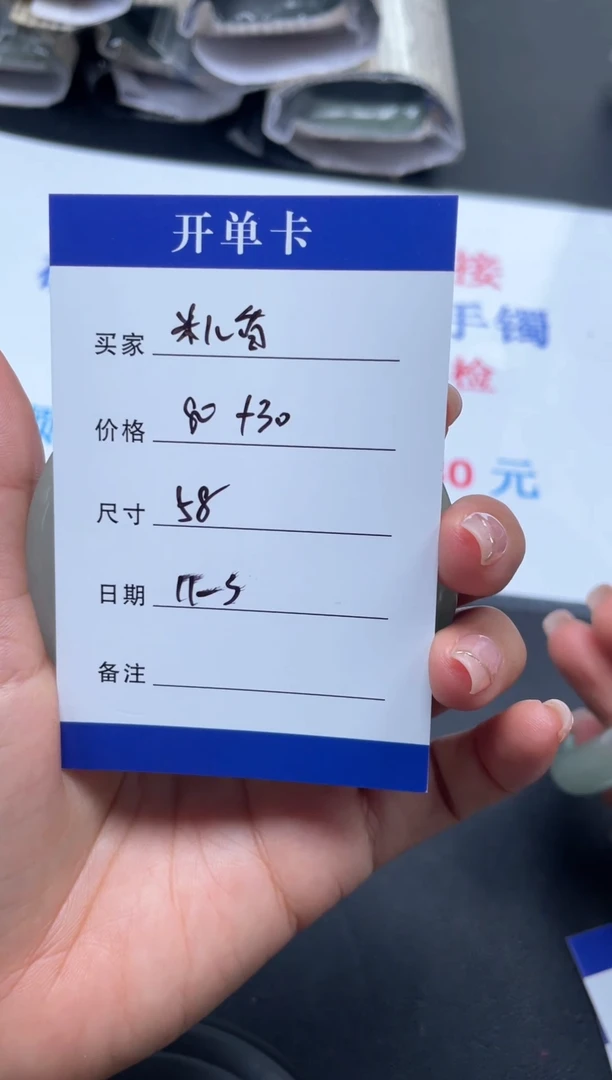 开单卡
接
手镯
检
0 元
买家 米儿首
价格 80 +30
尺寸 58
日期 11-5
备注